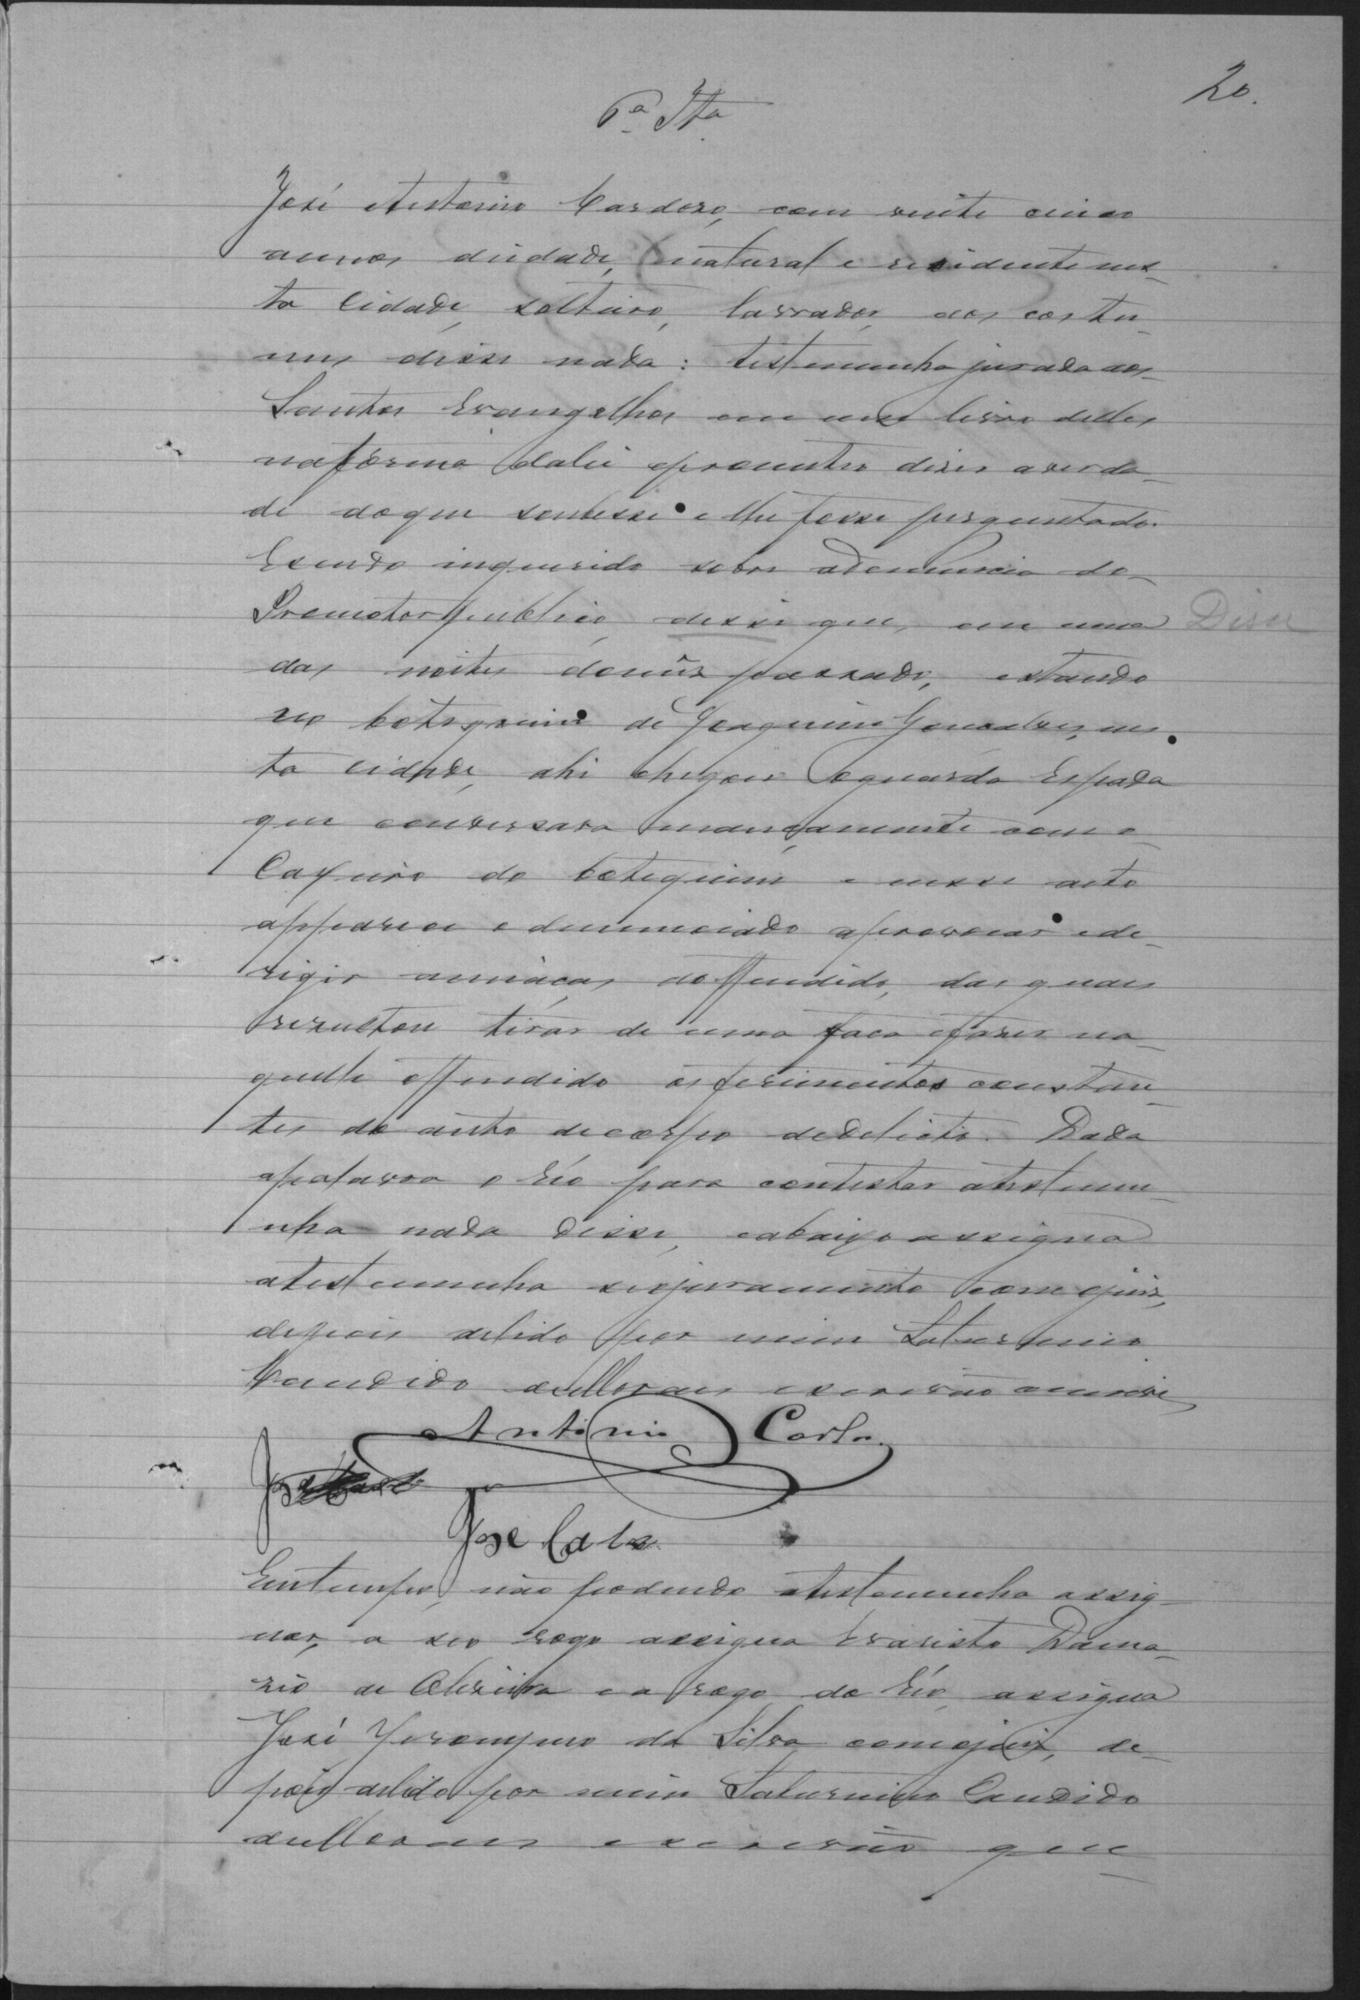 20.
6ª Tta
José Antonio Cardozo, com vinte cinco
annos deidade, natural e residente nes-
ta cidade, solteiro, lavrador, aos costu-
mes disse nada: testemunha jurada aos
Santos Evangelhos em um livro delles
naforma dalei eprometteu dizer averda-
de doque soubesse e lhe fosse perguntado.
Esendo inquerido sobre adenuncia do
Promotor publico, disse que, em uma
Disse
das noites domês passado, estando
no botequim de Joaquim Gonçalves, nes-
ta cidade, ahi chegou oguarda Espada
que conversava mançamente com o
Caxeiro do botequim e nesse acto
appareceu o denunciado aprovocar e de-
rigir ameaças ao offendido, das quaes
rezultou tirar de uma faca efazer na-
quelle offendido os ferimentos constan-
tes do auto decorpo dedelicto. Dada
apalavra o réo para contestar atestemu-
nha nada disse, eabaixo assigna
atestemunha seojuramento com ojuiz,
depois delido por mim Saturnino
Candido escrivão escrevi
Antonio Carlos
José
José Cardozo
Emtempo, não podendo atestemunha assig-
nar, a seo rogo assigna Evaristo Dama-
zio de Oliveira e a rogo do réo, assigna
José da Silva comojuiz, de-
pois delido por mim Saturnino Candido
escrivão que